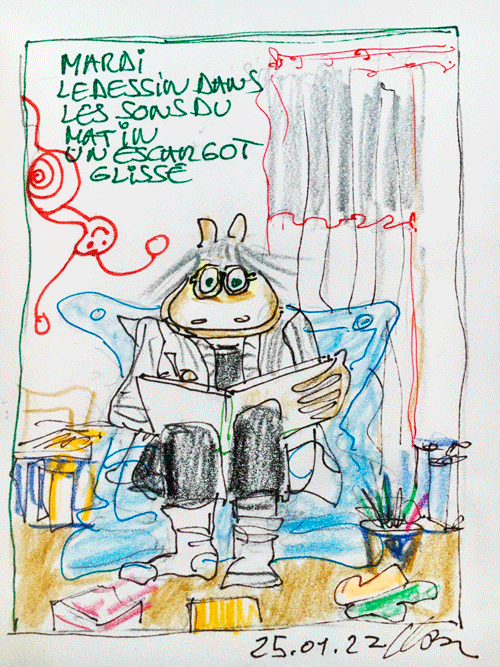 MARDI
LE DESSIN DANS
LES SONS DU
MATIN
UN ESCARGOT
GLISSE
25.01.22